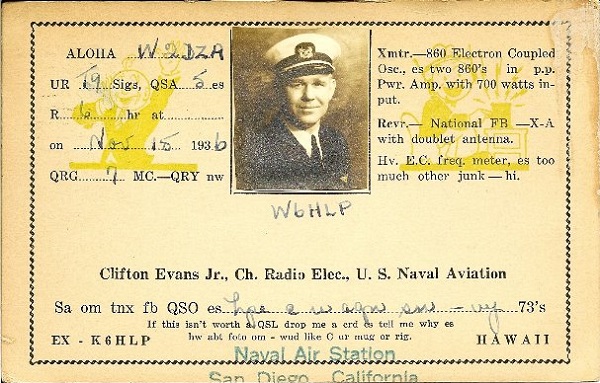 ALOHA W2DZA
UR T9 Sigs, QSA 5 es
R 6 hr at
on Nov 15 1936
QRG 7 MC.—QRY nw
Xmtr.—860 Electron Coupled
Osc., es two 860's in p.p.
Pwr. Amp. with 700 watts in-
put.
Rcvr.— National FB —X-A
with doublet antenna.
Hv. E.C. freq. meter, es too
much other junk — hi.
W6HLP
Clifton Evans Jr., Ch. Radio Elec., U. S. Naval Aviation
Sa om tnx fb QSO es hpe c u agn sn - vy 73's
If this isn't worth a QSL drop me a crd es tell me why es
EX - K6HLP hw abt foto om - wud like C ur mug or rig. HAWAII
Naval Air Station
San Diego, California